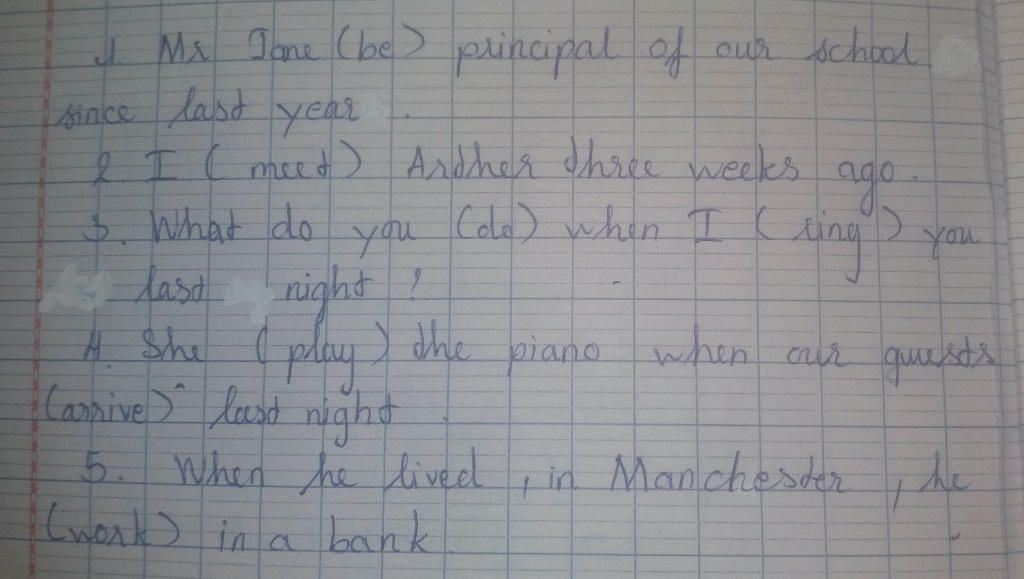 1 Mr Jane (be) principal of our school
since last year .
2 I ( meet) Arther three weeks ago.
3. What do you (do) when I ( ring ) you
last night ?
4. She ( play ) the piano when our guests
(arrive) last night .
5. When he lived , in Manchester , he
(work) in a bank.